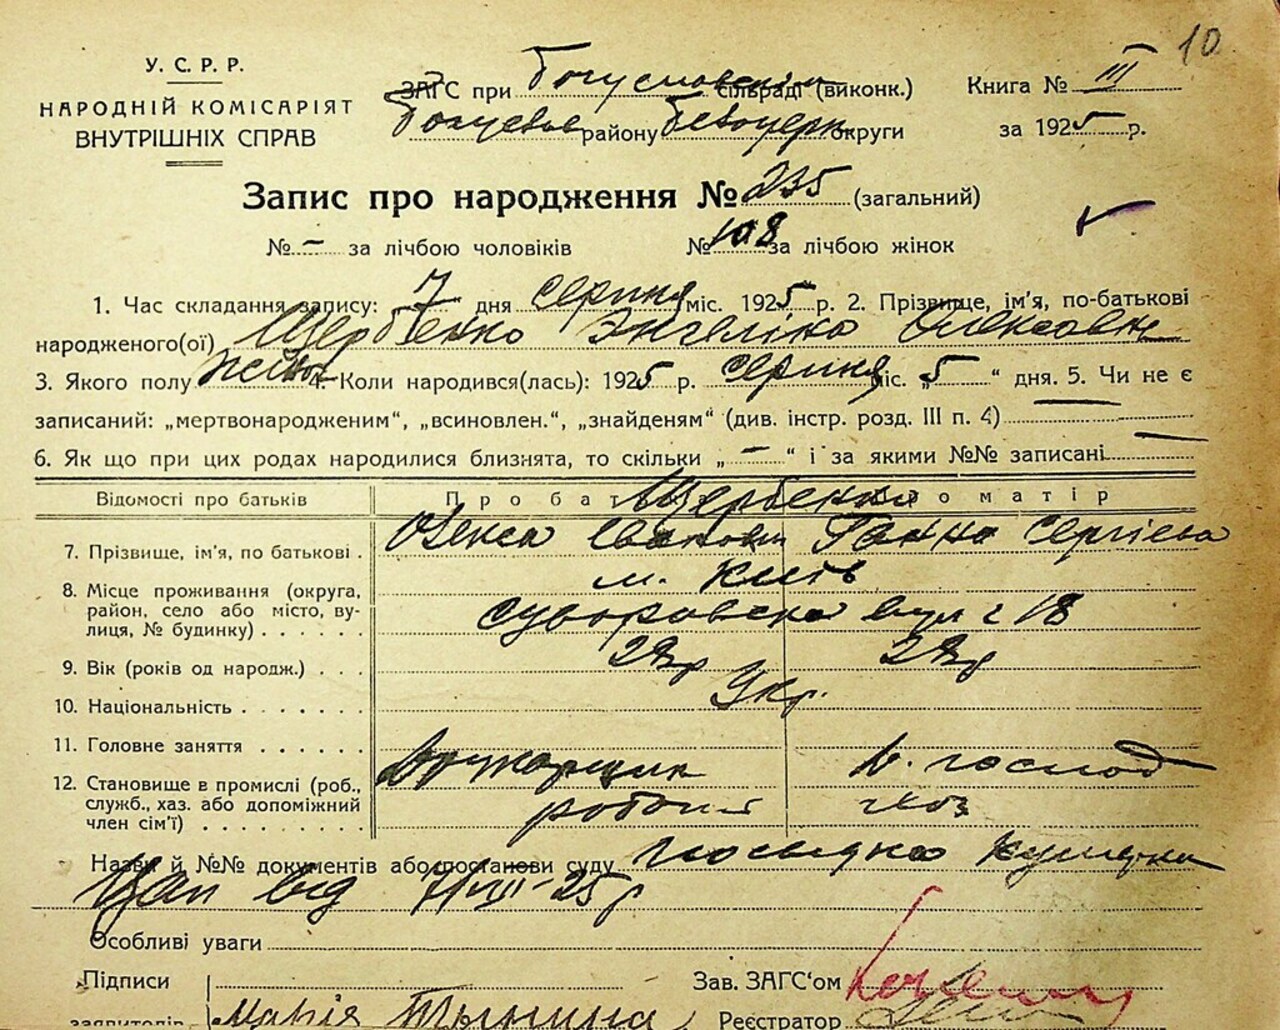 10
У. С. Р. Р.
НАРОДНІЙ КОМІСАРІЯТ
ВНУТРІШНІХ СПРАВ
ЗАГС при Богуславськім сільраді (виконк.)
району Білоцерк округи
Книга № III
за 1925 р.
Запис про народження № 235 (загальний)
№ – за лічбою чоловіків № 108 за лічбою жінок
1. Час складання запису: „7“ дня серпня міс. 1925 р. 2. Прізвище, ім'я, по-батькові
народженого(ої) Щербенко Энгеліна Олексовна
3. Якого полу жіноч 4. Коли народився(лась): 1925 р. серпня міс. „5“ дня. 5. Чи не є
записаний: „мертвонародженим“, „всиновлен.“, „знайденям“ (див. інстр. розд. III п. 4) —
6. Як що при цих родах народилися близнята, то скільки „–“ і за якими №№ записані —
Відомості про батьків Про батька Про матір
Щербенко
7. Прізвище, ім'я, по батькові . Олекса Іванович Ганна Сергієвна
8. Місце проживання (округа, м. Київ
район, село або місто, ву-
лиця, № будинку) . . . . . Суворовска вул 18
9. Вік (років од народж.) . . . 23р 23р
10. Національність . . . . . . . Укр.
11. Головне заняття . . . . . . господ
12. Становище в промислі (роб.,
служб., хаз. або допоміжний робоч
член сім'ї) . . . . . . . . .
Назви й №№ документів або постанови суду посвідка
від 7/VIII–25р
Особливі уваги
Підписи
заявителів Марія
Зав. ЗАГС'ом
Реєстратор